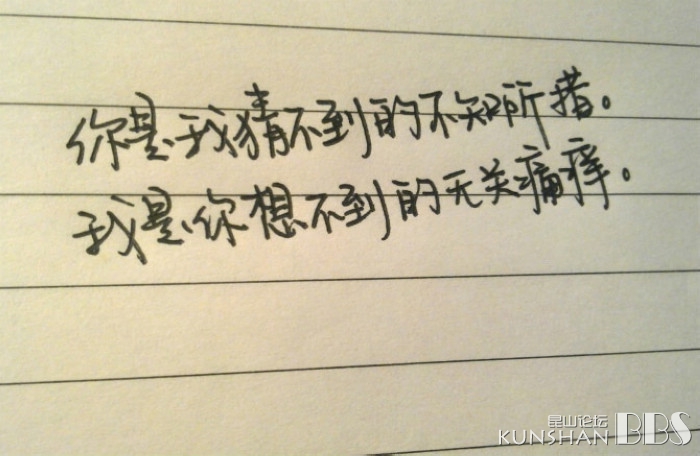 你是我猜不到的不知所措。
我是你想不到的无关痛痒。
昆山论坛
KUNSHAN BBS